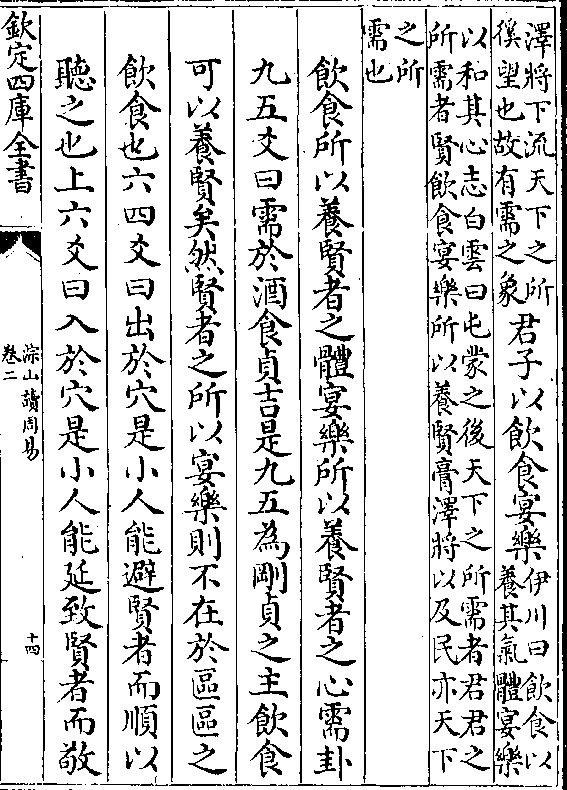 澤將下流天下之所
徯望也故有需之象
君子以飲食宴樂
伊川曰飲食以
養其氣體宴樂
以和其心志白雲曰屯蒙之後天下之所需者君君之
所需者賢飲食宴樂所以養賢膏澤將以及民亦天下
之所
需也
飲食所以養賢者之體宴樂所以養賢者之心需卦
九五爻曰需於酒食貞吉是九五為剛貞之主飲食
可以養賢矣然賢者之所以宴樂則不在於區區之
飲食也六四爻曰出於穴是小人能避賢者而順以
聽之也上六爻曰入於穴是小人能延致賢者而敬
欽定四庫全書
淙山讀周易
卷二
十四